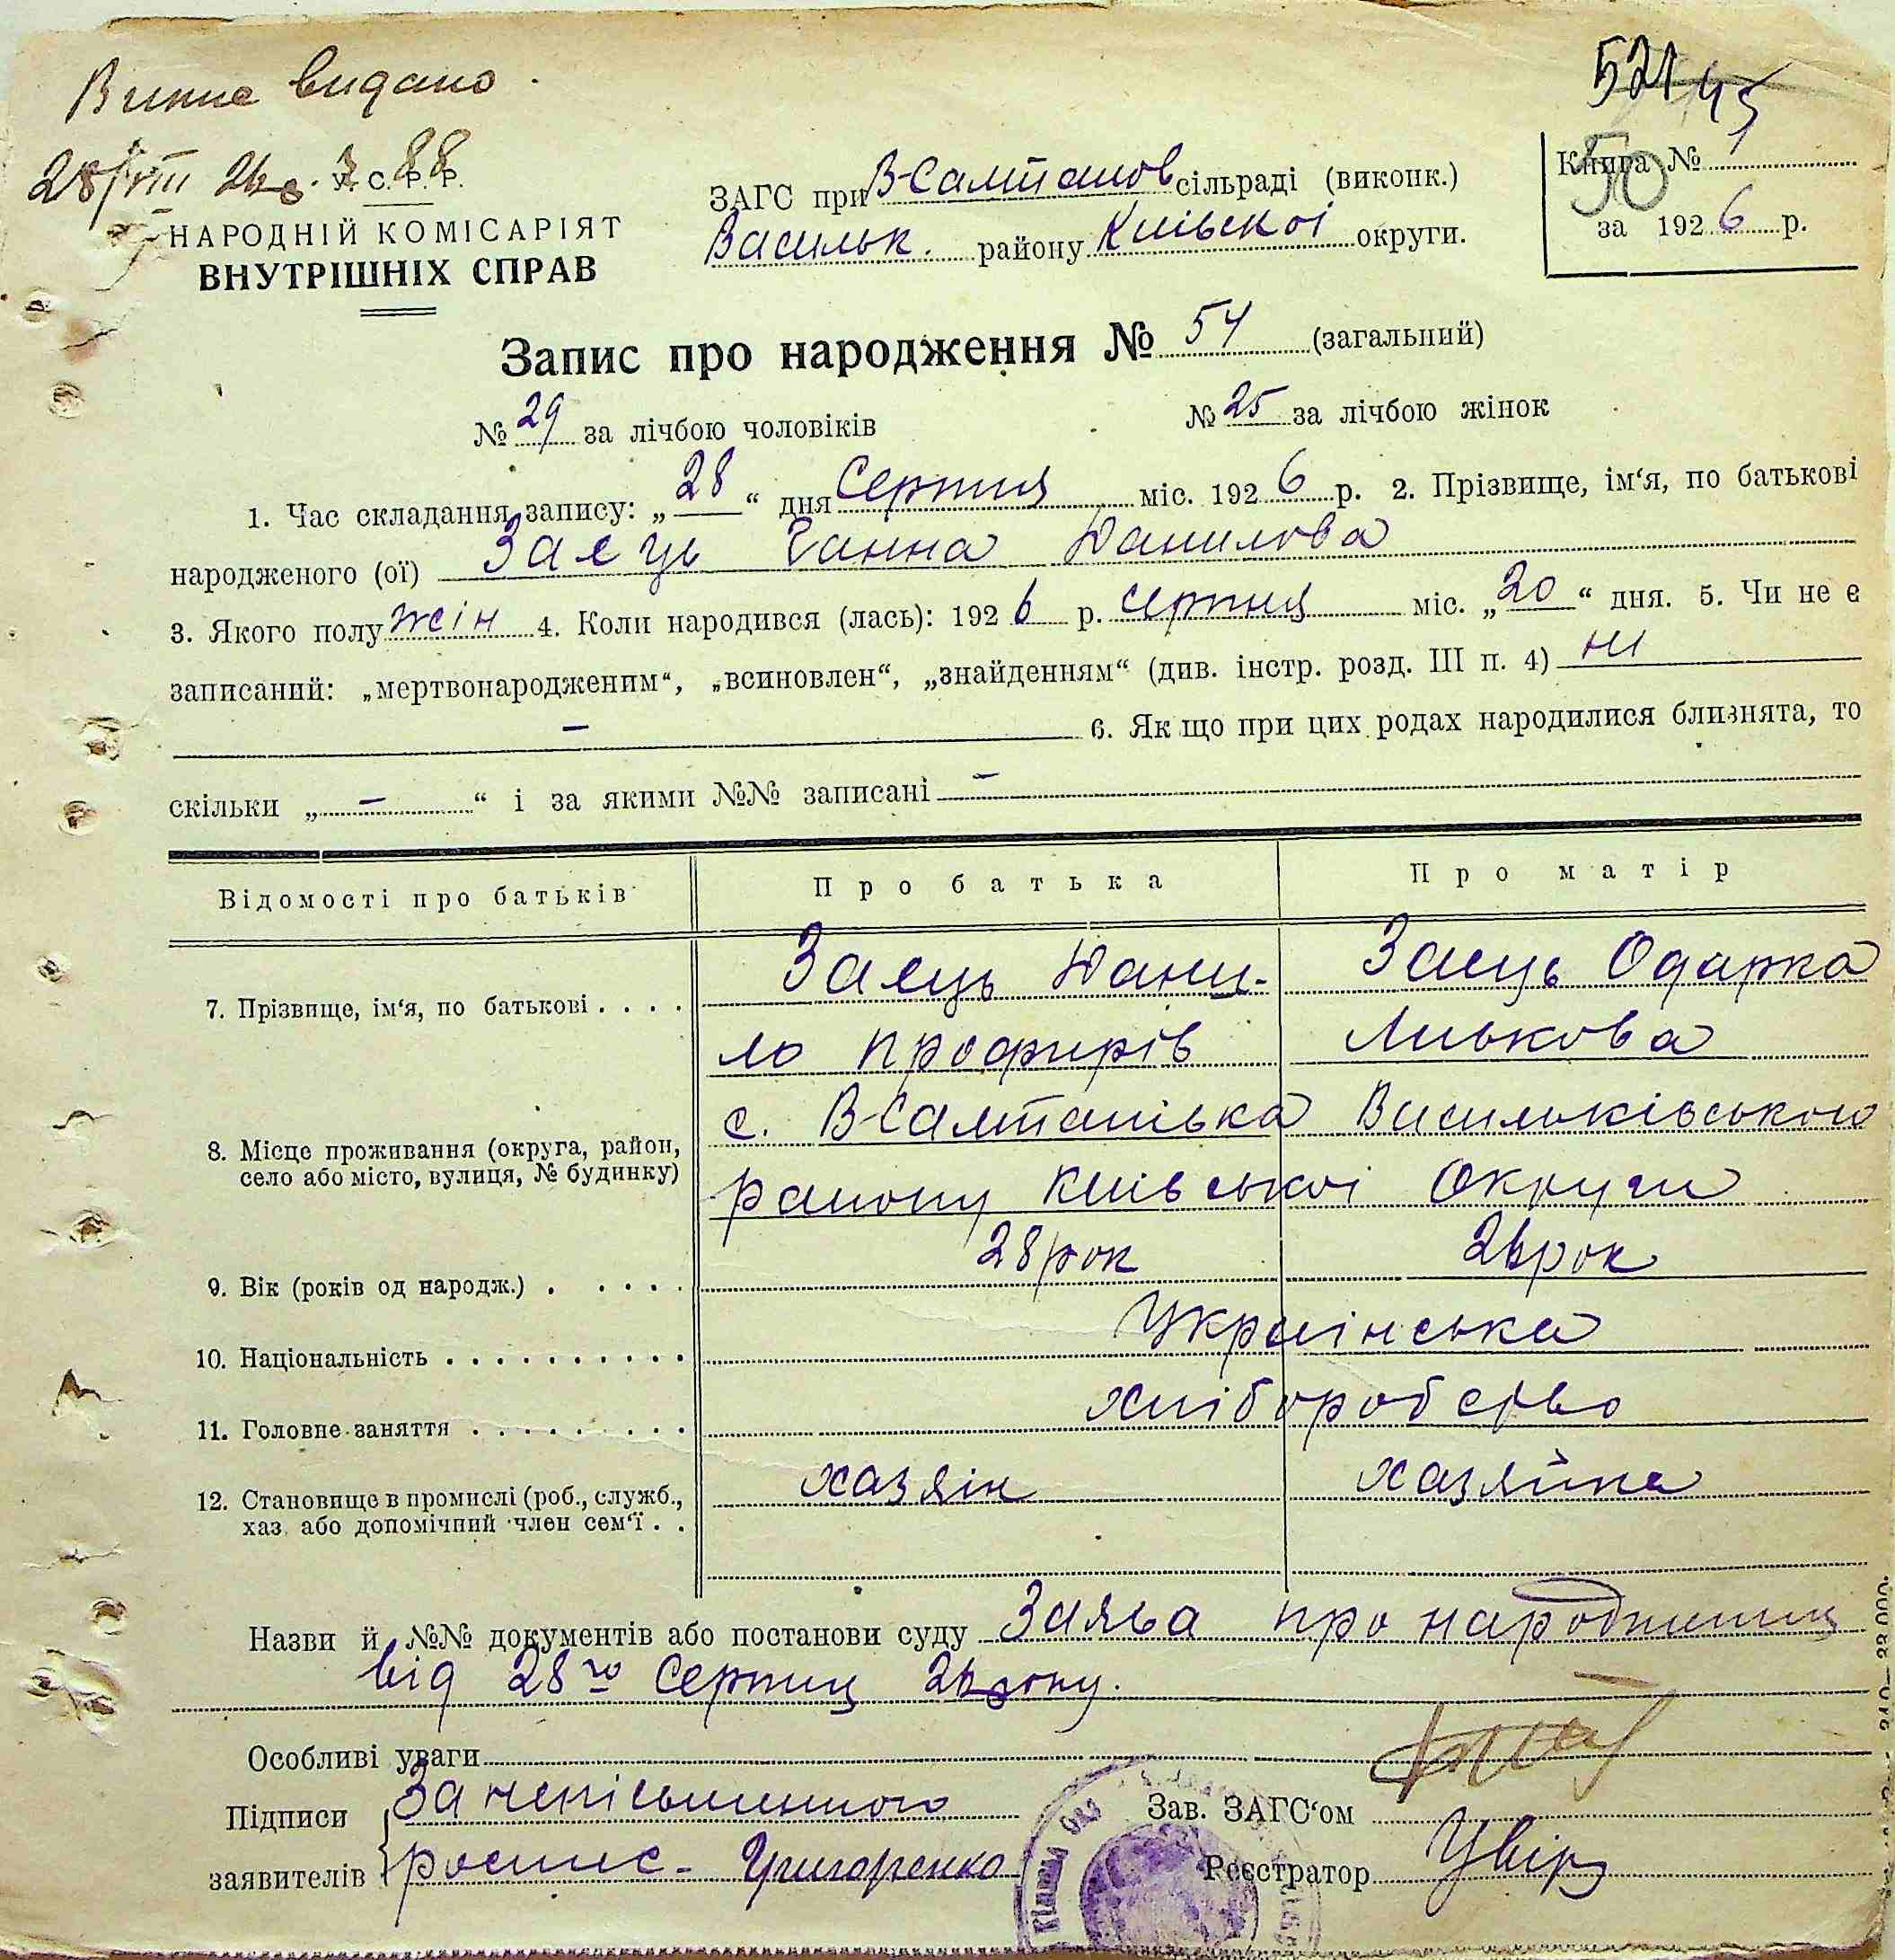 Випис видано
521 45
28/VIII 26 р. № 88
У. С. Р. Р.
НАРОДНІЙ КОМІСАРІЯТ
ВНУТРІШНІХ СПРАВ
ЗАГС при В-Салтанов сільраді (виконк.)
Васильк. району Київскоі округи.
Книга № 1
50
за 1926 р.
Запис про народження № 54 (загальний)
№ 29 за лічбою чоловіків № 25 за лічбою жінок
1. Час складання запису: „28“ дня Серпня міс. 1926 р. 2. Прізвище, ім‘я, по батькові
народженого (ої) Заєць Ганна Данилова
3. Якого полу жін 4. Коли народився (лась): 1926 р. серпня міс. „20“ дня. 5. Чи не є
записаний: „мертвонародженим“, „всиновлен“, „знайденням“ (див. інстр. розд. III п. 4) ні
— 6. Як що при цих родах народилися близнята, то
скільки „—“ і за якими №№ записані —
Відомості про батьків Про батька Про матір
7. Прізвище, ім‘я, по батькові . . . . Заєць Дани- Заєць Одарка
ло Профирів Лькова
8. Місце проживання (округа, район, село або місто, вулиця, № будинку) с. В-Салтанівка Васильківського
району Київськоі Округи
9. Вік (років од народж.) . . . . . 28 рок 26 рок
10. Національність . . . . . . . . . . Українська
11. Головне заняття . . . . . . . . . хліборобство
12. Становище в промислі (роб., служб., хаз. або допомічний член сем‘ї . . хазяін хазяйка
Назви й №№ документів або постанови суду Заява про народження
від 28го Серпня 26 року.
Особливі уваги
Підписи За неписьменного
заявителів роспис- Григоренко
Зав. ЗАГС‘ом
Реєстратор Увірз